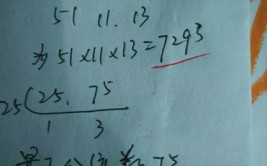 51 11. 13
为 51×11×13=7293
25(25. 75
1 3
75